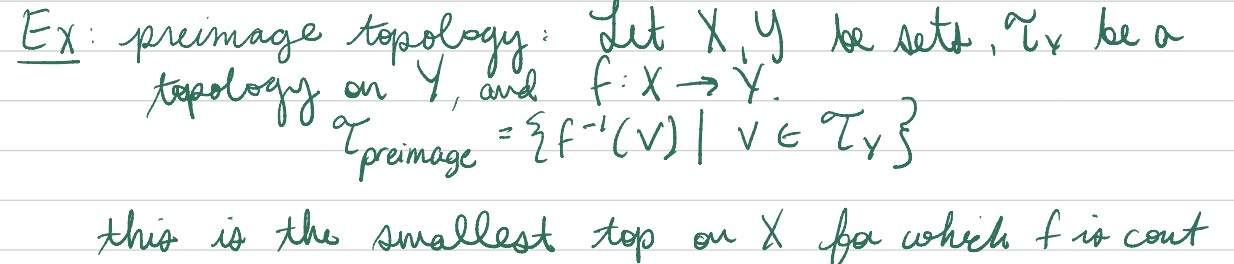 Ex: preimage topology: Let X, Y be sets, 𝒯_Y be a
topology on Y, and f: X → Y.
𝒯_preimage = {f⁻¹(V) | V ∈ 𝒯_Y}
this is the smallest top on X for which f is cont